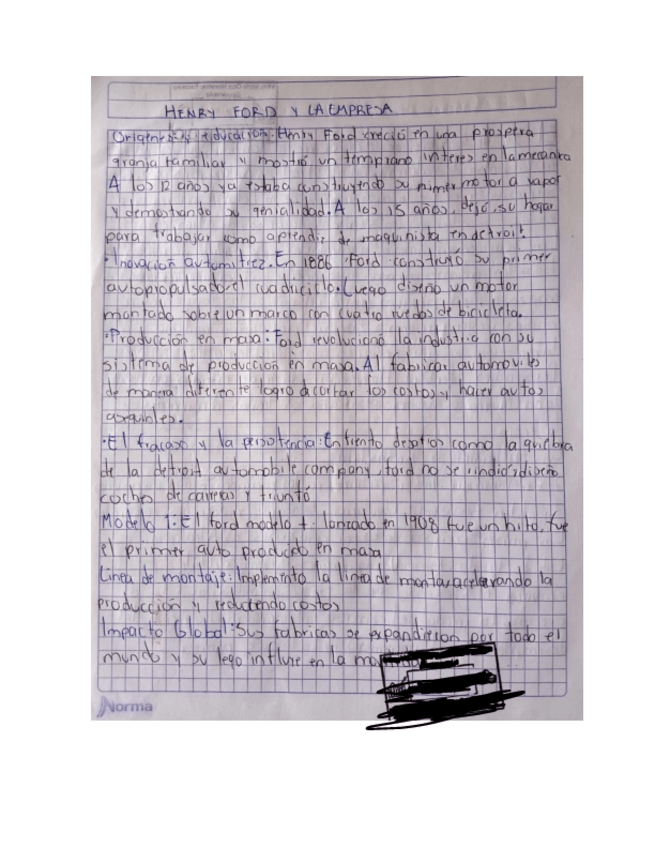 HENRY FORD Y LA EMPRESA
Origenes y educacion: Henry Ford creció en una prospera
granja familiar y mostró un temprano interes en la mecanica
A los 12 años ya estaba construyendo su primer motor a vapor
y demostrando su genialidad. A los 15 años, dejó su hogar
para trabajar como aprendiz de maquinista en detroit.
·Inovación automitriz. En 1886 Ford construyó su primer
autopropulsado el cuadriciclo. Luego diseño un motor
montado sobre un marco con cuatro ruedas de bicicleta.
·Producción en masa: Ford revolucionó la industria con su
sistema de producción en masa. Al fabricar automoviles
de manera diferente logro acortar los costos y hacer autos
asequibles.
·El fracaso y la persistencia: Enfrento desafios como la quiebra
de la detroit automobile company, ford no se rindió, diseño
coches de carreras y triunfó
Modelo T: El ford modelo t. lanzado en 1908 fue un hito, fue
el primer auto producido en masa
Linea de montaje: Implemento la linea de montaje acelerando la
producción y reduciendo costos
Impacto Global: Sus fabricas se expandieron por todo el
mundo y su lego influye en la
Norma